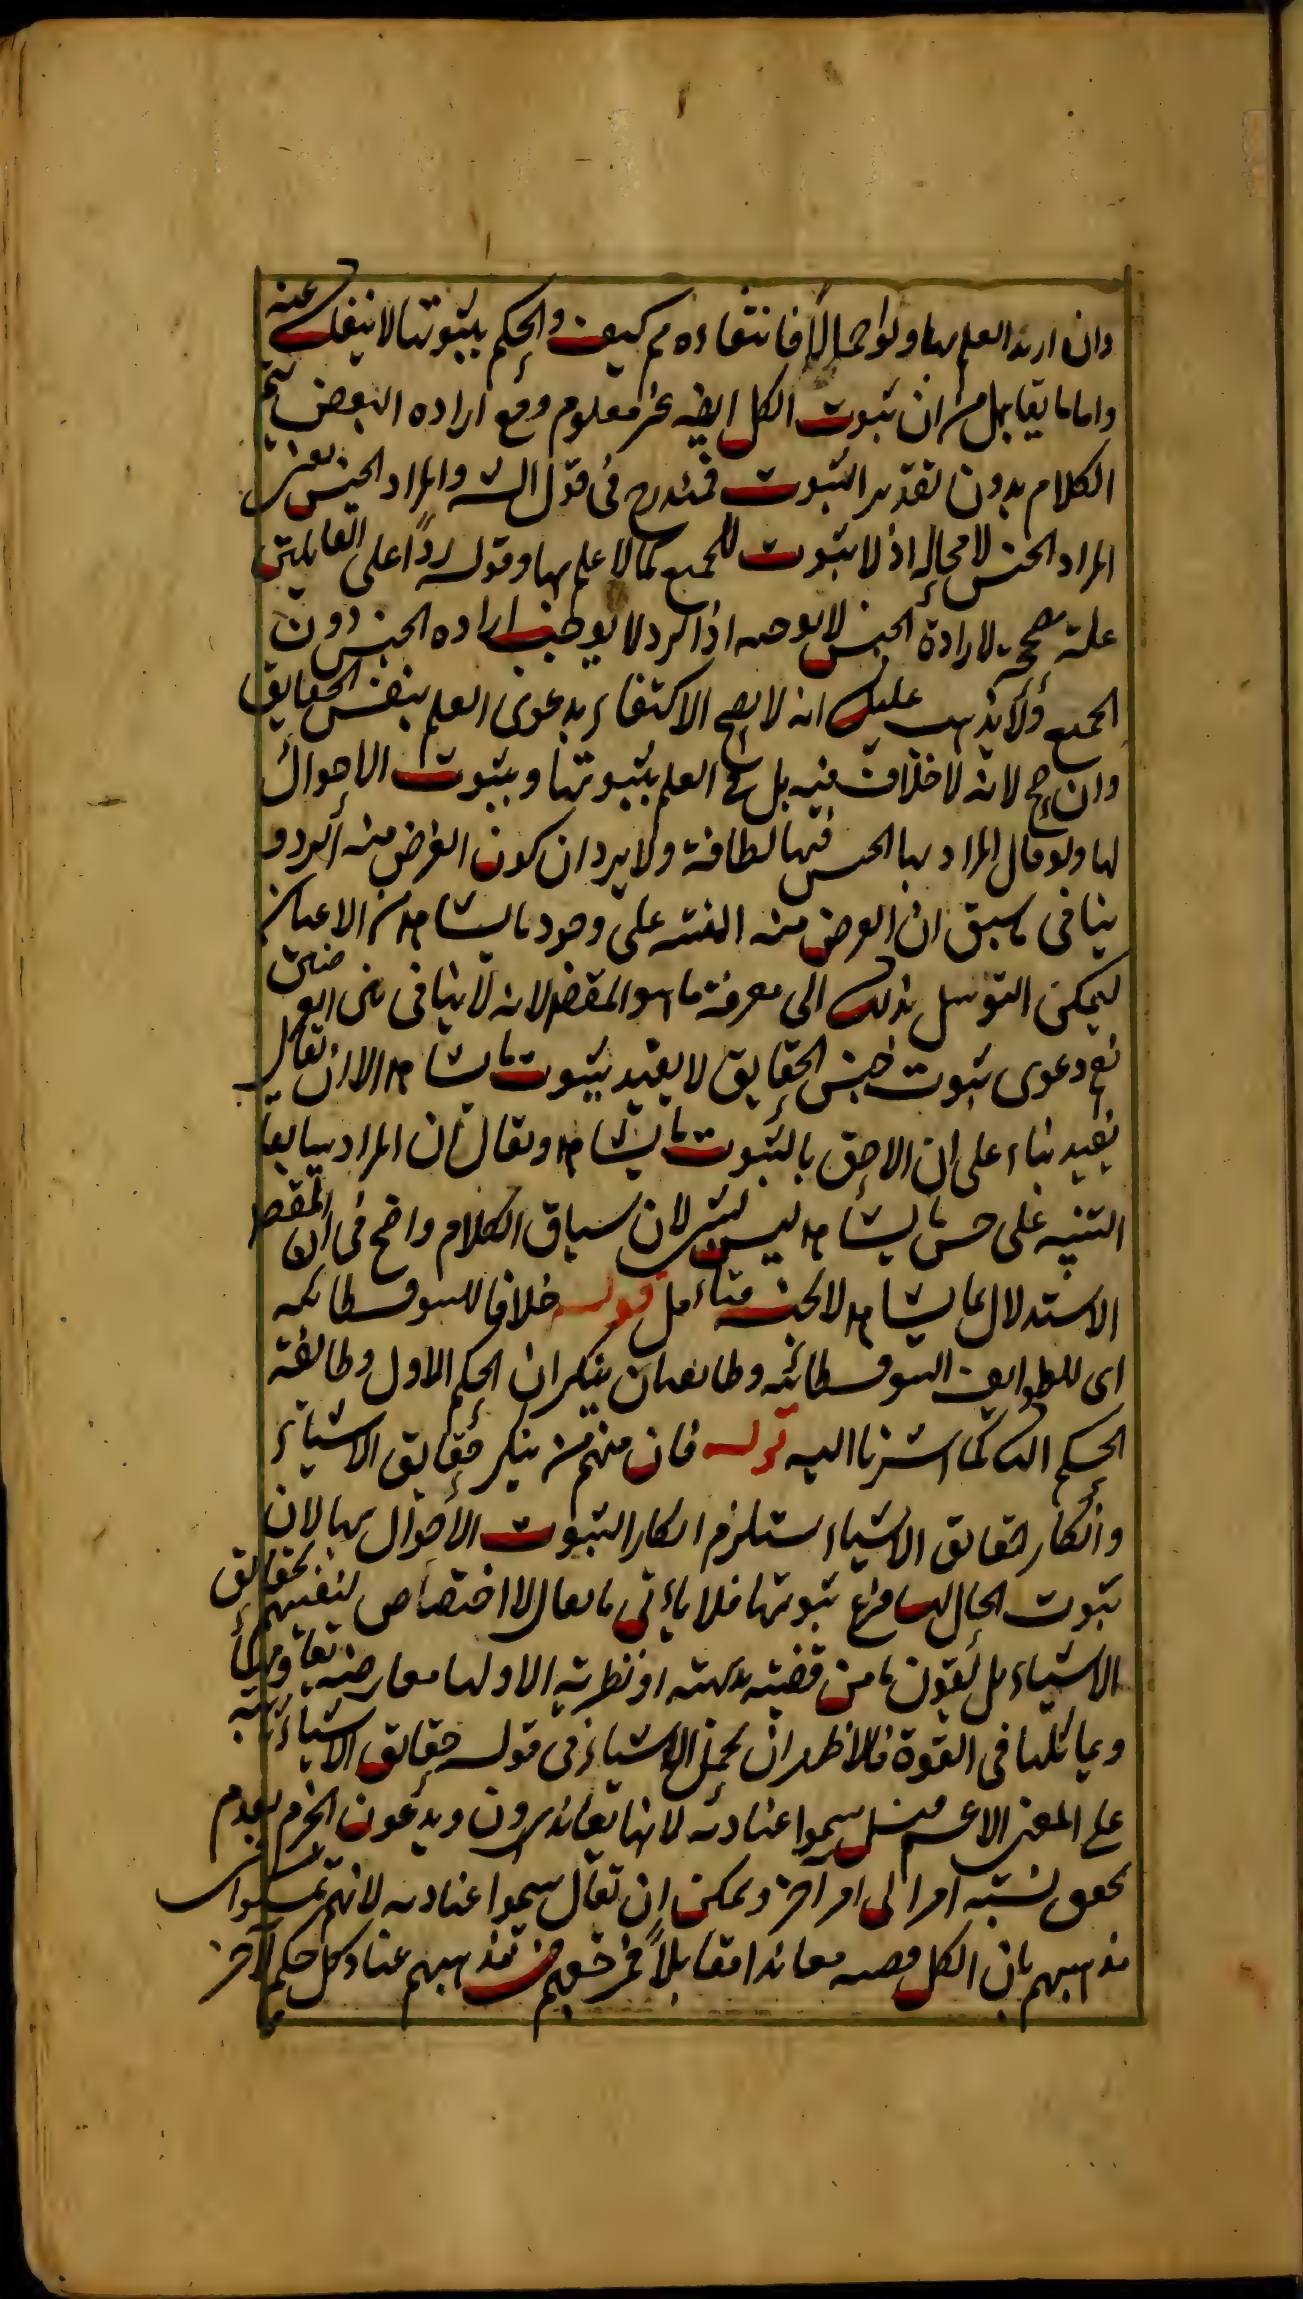 وان اريد العلم بها ولو اجمالا فانتفاءه مم كيف والحكم بثبوتها لا ينفك عنه
واما ما يقابل من ان ثبوت الكل ايضه غير معلوم ومع اراده البعض يتم
الكلام بدون تقدير الثبوت فمندرج فى قول الشه والمراد الجنس يعنى
المراد الجنس لا محاله اذ لا ثبوت للجميع كما لا علم بها وقوله ردا على القايلين
علة مصححة لارادة الجنس لا موجبه اذ الرد لا يوجب اراده الجنس دون
الجميع ولا يذهب عليك انه لا يصح الاكتفاء بدعوى العلم بنفس الحقايق
وان صح لانه لا خلاف فيه بل فى العلم بثبوتها وبثبوت الاحوال
لها ولو قال المراد بها الجنس فيها لطافة ولا يرد ان كون الغرض منه الرد و
ينافى ما سبق ان الغرض منه التنبيه على وجود ما يشاهد من الاعيان
ليمكن التوسل بذلك الى معرفة ما هو المقصد لانه لا ينافى بين الغرضين
نعم دعوى ثبوت جنس الحقايق لا يفيد بثبوت ما يشاهد الا ان يقال
يفيد بناء على ان الاحق بالثبوت ما يشاهد ويقال ان المراد بما يقا
التنبيه على جنس ما يشاهد ليس بشئ لان سياق الكلام واضح فى ان المقصد
الاستدلال بما يشاهد لا بجنسه فتامل قوله خلافا للسوفسطائيه
اى للطوايف السوفسطائيه وطايفتان ينكران الحكم الاول وطايفة
الحكم الثانى كما اشرنا اليه قوله فان منهم من ينكر حقايق الاشياء
وانكار حقايق الاشياء يستلزم انكار الثبوت الاحوال بها لان
ثبوت الحال لها فرع ثبوتها فلا ياتى ما يقال لا اختصاص لنفيهم بحقايق
الاشياء بل يقولون ما من قضيته بديهته او نظريته الا ولها معارضه تقاومها
ويماثلها فى القوة فالاظهر ان يحمل الاشياء فى قوله حقايق الاشياء ثابته
على المعنى الاعم قيل سموا عناديه لانها يعاندون ويدعون الجزم بعدم
تحقق نسبته امر الى امر آخر ويمكن ان يقال سموا عناديه لانهم تمسكوا فى
مذهبهم بان الكل قضيه معاندا مقابلا فمن حقهم من مذهبهم عناد كل حكم لاخر